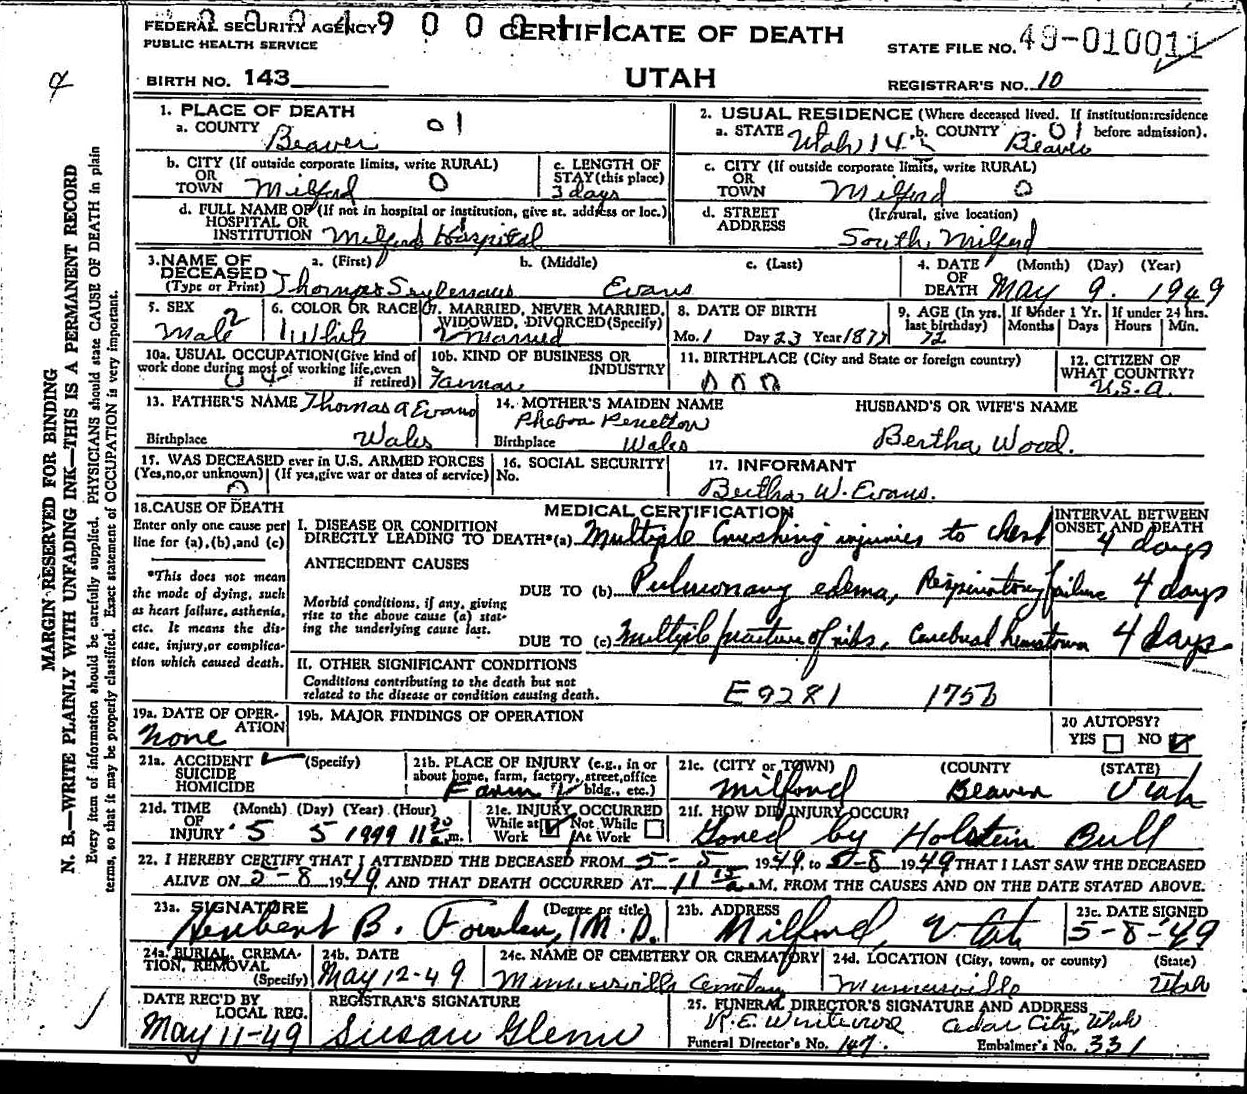 FEDERAL SECURITY AGENCY 9 0 0 CERTIFICATE OF DEATH STATE FILE NO. 49-010011
PUBLIC HEALTH SERVICE
BIRTH NO. 143 UTAH REGISTRAR'S NO. 10
1. PLACE OF DEATH
a. COUNTY Beaver 01
2. USUAL RESIDENCE (Where deceased lived. If institution:residence before admission).
a. STATE Utah 14 b. COUNTY 01 Beaver
b. CITY (If outside corporate limits, write RURAL)
OR TOWN Milford 0
c. LENGTH OF STAY (this place)
3 days
c. CITY (If outside corporate limits, write RURAL)
OR TOWN Milford 0
d. FULL NAME OF (If not in hospital or institution, give st. address or loc.)
HOSPITAL OR INSTITUTION Milford Hospital
d. STREET ADDRESS (If rural, give location)
South Milford
3. NAME OF DECEASED (Type or Print)
a. (First) b. (Middle) c. (Last)
Thomas Evans
4. DATE OF DEATH (Month) (Day) (Year)
May 9. 1949
5. SEX
Male 2
6. COLOR OR RACE
White
7. MARRIED, NEVER MARRIED, WIDOWED, DIVORCED (Specify)
Married
8. DATE OF BIRTH
Mo. 1 Day 23 Year 1877
9. AGE (In yrs. last birthday)
72
If Under 1 Yr. Months Days
If under 24 hrs. Hours Min.
10a. USUAL OCCUPATION (Give kind of work done during most of working life, even if retired)
10b. KIND OF BUSINESS OR INDUSTRY
11. BIRTHPLACE (City and State or foreign country)
12. CITIZEN OF WHAT COUNTRY?
U.S.A.
13. FATHER'S NAME Thomas A Evans
Birthplace Wales
14. MOTHER'S MAIDEN NAME
Birthplace Wales
HUSBAND'S OR WIFE'S NAME
Bertha Wood.
15. WAS DECEASED ever in U.S. ARMED FORCES
(Yes, no, or unknown) (If yes, give war or dates of service)
16. SOCIAL SECURITY No.
17. INFORMANT
Bertha W. Evans.
18. CAUSE OF DEATH
Enter only one cause per line for (a), (b), and (c)
*This does not mean the mode of dying, such as heart failure, asthenia, etc. It means the disease, injury, or complication which caused death.
MEDICAL CERTIFICATION
INTERVAL BETWEEN ONSET AND DEATH
I. DISEASE OR CONDITION
DIRECTLY LEADING TO DEATH*(a) Multiple Crushing injuries to chest 4 days
ANTECEDENT CAUSES
DUE TO (b) Pulmonary edema, Respiratory failure 4 days
Morbid conditions, if any, giving rise to the above cause (a) stating the underlying cause last.
DUE TO (c) Multiple fracture of ribs, Cerebral 4 days
II. OTHER SIGNIFICANT CONDITIONS
Conditions contributing to the death but not related to the disease or condition causing death.
E9281 175b
19a. DATE OF OPERATION
None
19b. MAJOR FINDINGS OF OPERATION
20 AUTOPSY?
YES NO
21a. ACCIDENT (Specify)
SUICIDE
HOMICIDE
21b. PLACE OF INJURY (e.g., in or about home, farm, factory, street, office bldg., etc.)
Farm
21c. (CITY or TOWN) (COUNTY) (STATE)
Milford Beaver Utah
21d. TIME OF INJURY (Month) (Day) (Year) (Hour)
5 5 1949 11 m.
21e. INJURY OCCURRED
While at Work Not While At Work
21f. HOW DID INJURY OCCUR?
Gored by Holstein Bull
22. I HEREBY CERTIFY THAT I ATTENDED THE DECEASED FROM 5-5 1949, to 5-8 1949 THAT I LAST SAW THE DECEASED
ALIVE ON 5-8 1949 AND THAT DEATH OCCURRED AT 11 15 a M. FROM THE CAUSES AND ON THE DATE STATED ABOVE.
23a. SIGNATURE (Degree or title)
Herbert B. Fowler, M.D.
23b. ADDRESS
Milford, Utah
23c. DATE SIGNED
5-8-49
24a. BURIAL, CREMATION, REMOVAL (Specify)
24b. DATE
May 12-49
24c. NAME OF CEMETERY OR CREMATORY
Minersville Cemetery
24d. LOCATION (City, town, or county) (State)
Minersville Utah
DATE REC'D BY LOCAL REG.
May 11-49
REGISTRAR'S SIGNATURE
Susan Glenn
25. FUNERAL DIRECTOR'S SIGNATURE AND ADDRESS
Cedar City, Utah
Funeral Director's No. 147. Embalmer's No. 331
MARGIN RESERVED FOR BINDING
N. B.—WRITE PLAINLY WITH UNFADING INK—THIS IS A PERMANENT RECORD
Every item of information should be carefully supplied. PHYSICIANS should state CAUSE OF DEATH in plain
terms, so that it may be properly classified. Exact statement of OCCUPATION is very important.